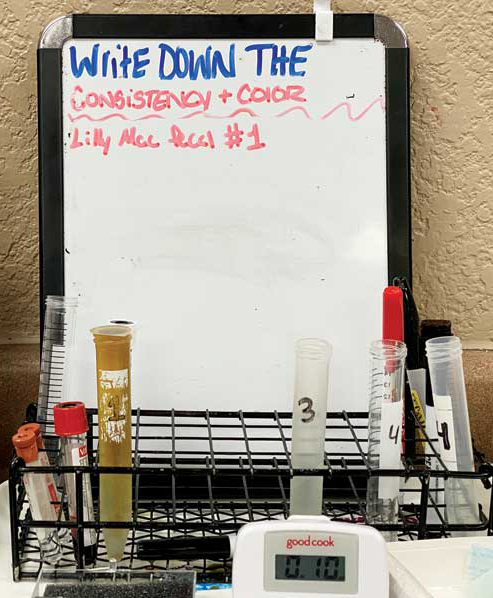 WRITE DOWN THE
CONSISTENCY + COLOR
Lilly Mcc #1
1
3
4
4
good cook
0.10